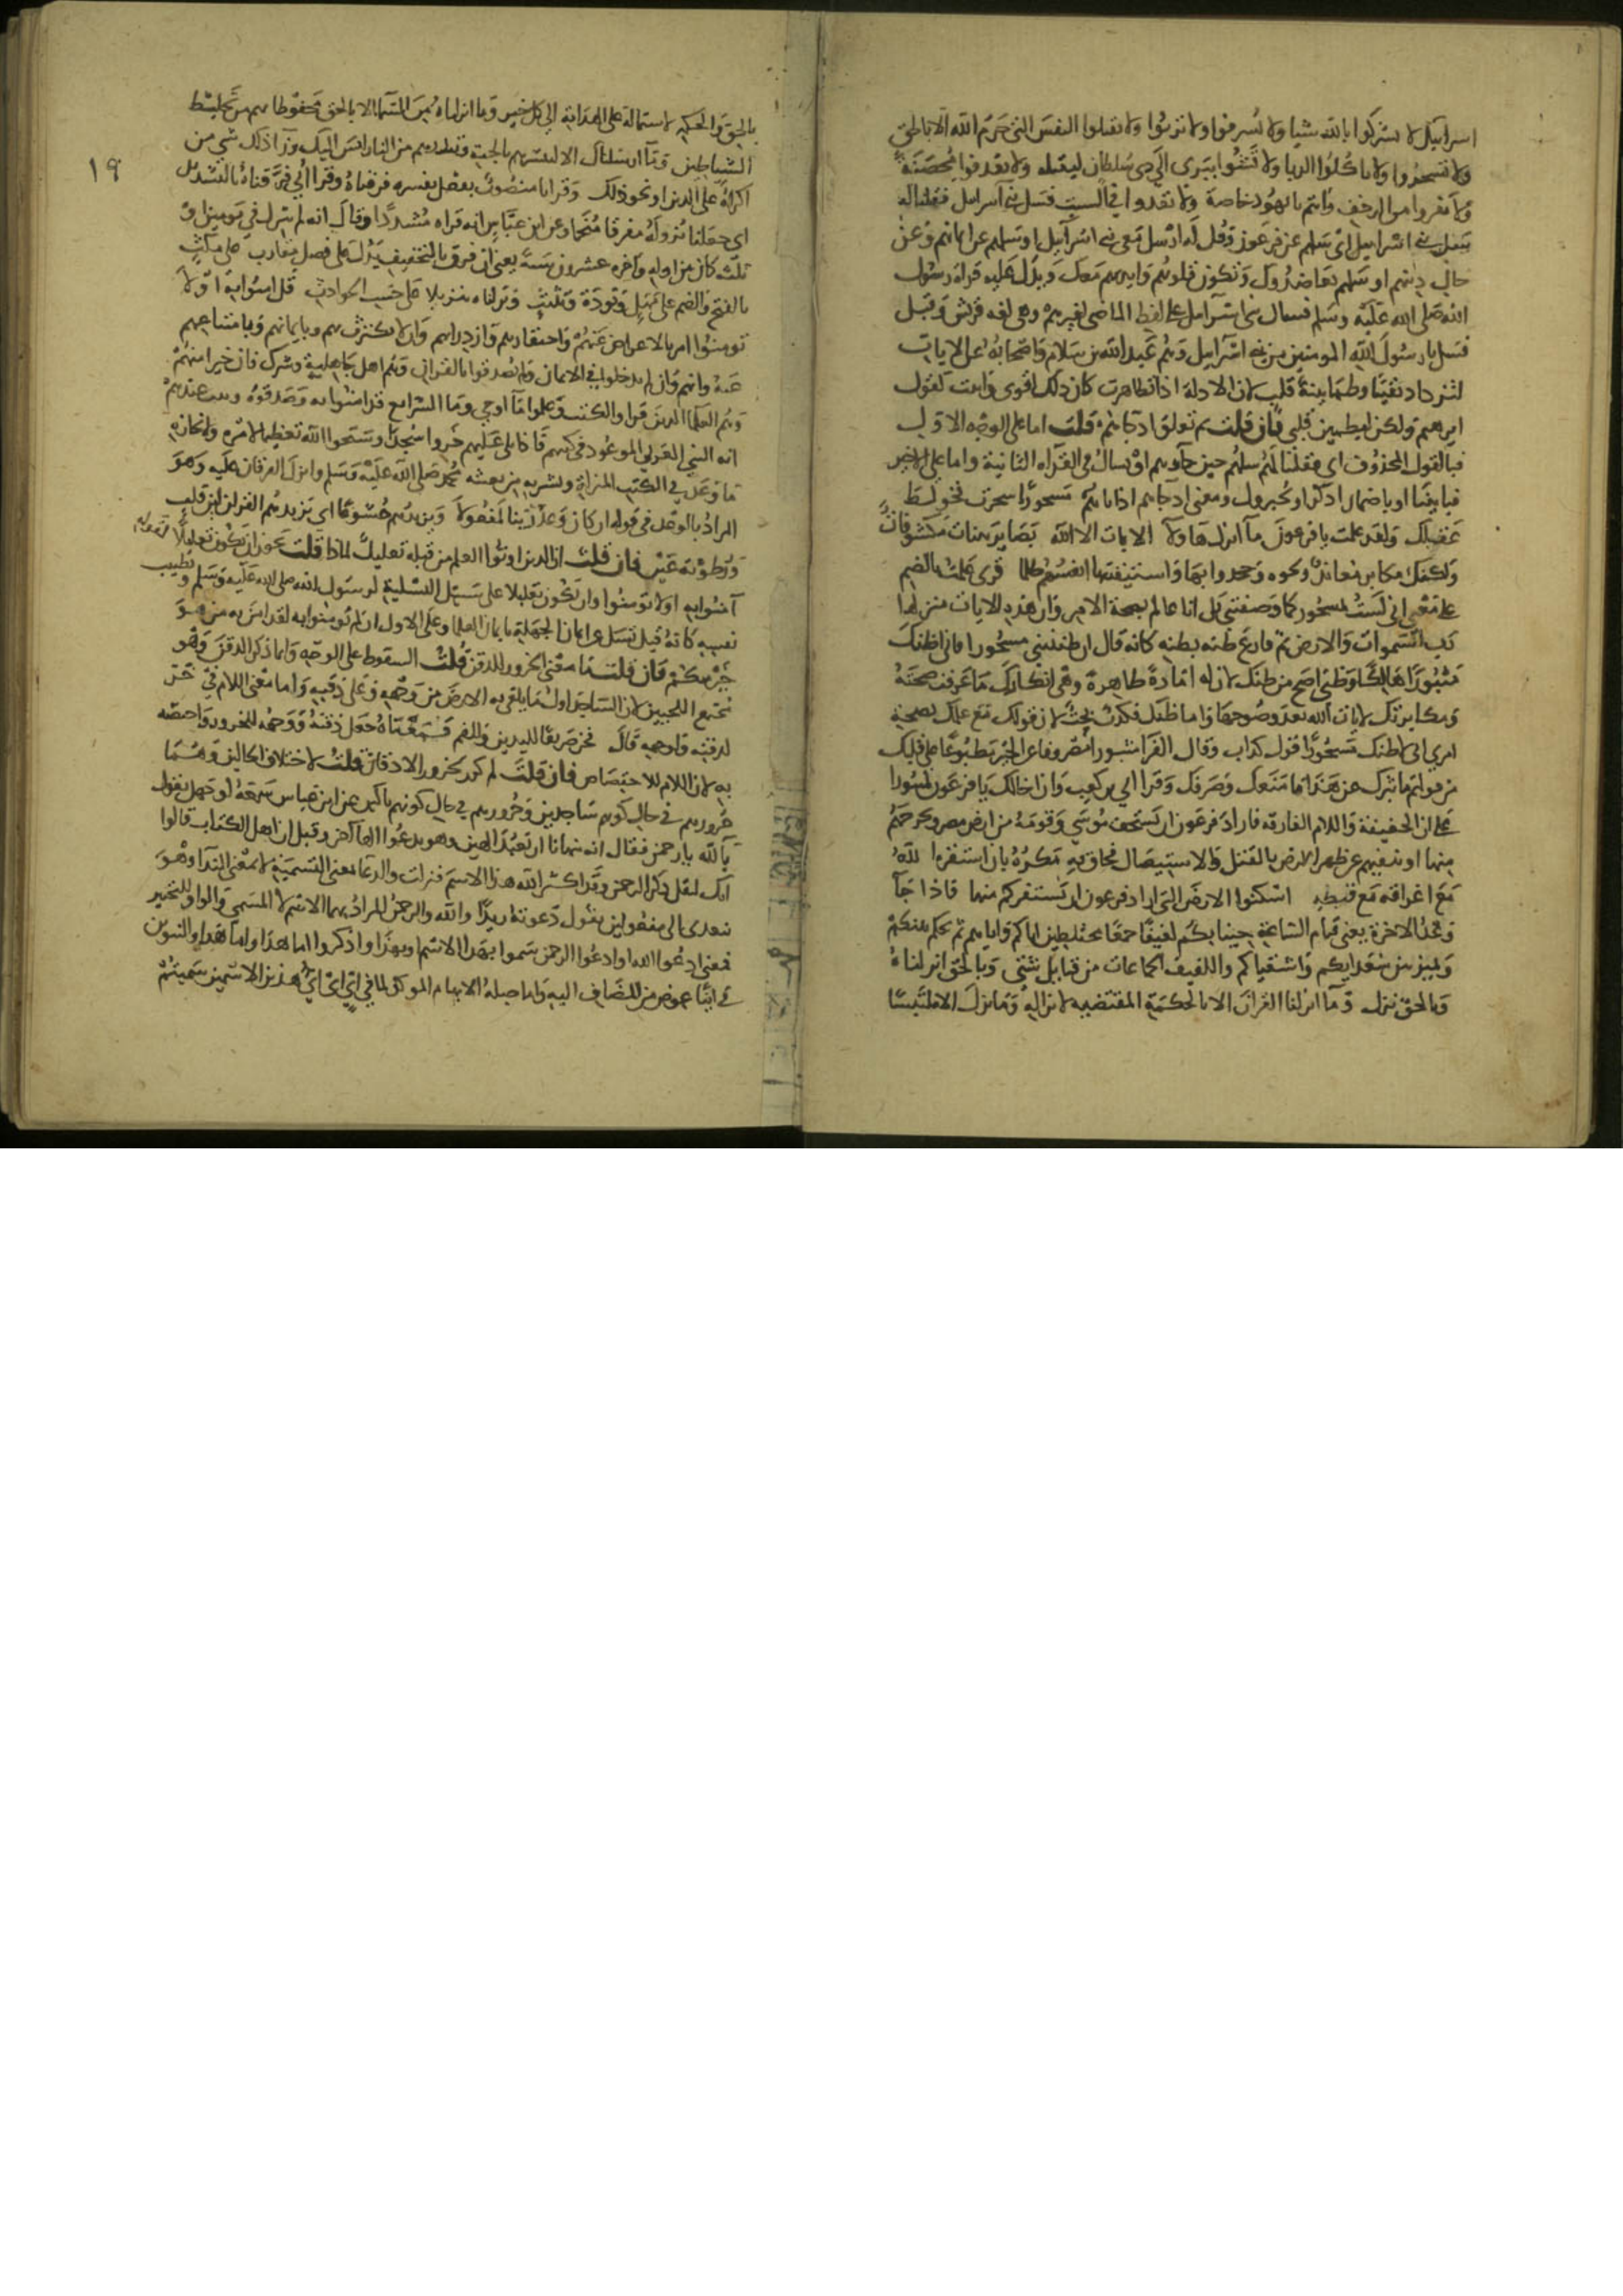 اسرايل لا تشركوا بالله شيا ولا تسرفوا ولا تزنوا ولا تقتلوا النفس التى حرم الله الا بالحق
ولا تسحروا ولا تاكلوا الربا ولا تمشوا ببرى الى ذى سلطان ليقتله ولا تقذفوا محصنة
ولا تفروا من الزحف وانتم يا يهود خاصة ولا تعدوا فى السبت فسل بنى اسرايل فقلنا له
سل بنى اسرايل اى سلهم عن فرعون وقل له ارسل معى بنى اسرايل او سلهم عن ايمانهم وعن
حال دينهم او سلهم ان يعاضدوك وتكون قلوبهم وايديهم معك ويدل عليه قراة رسول
الله صلى الله عليه وسلم فسال بنى اسرايل على لفظ الماضى بغير همز وهى لغه قريش وقيل
فسل يا رسول الله المومنين من بنى اسرايل وهم عبد الله بن سلام واصحابه عن الايات
لتزداد يقينا وطمانينة قلب لان الادلة اذا تظاهرت كان ذلك اقوى واثبت كقول
ابرهيم ولكن ليطمين قلبي فان قلت بم تعلق اذ جاهم قلت اما على الوجه الاول
فبالقول المحذوف اى فقلنا لهم سلهم حين جاوهم او بسال فى القراه الثانية واما على الاخير
فباتينا او باضمار اذكر او يخبروك ومعنى اذ جاهم اذ جا اباهم مسحورا سحرت فخولط
عقلك ولقد علمت يا فرعون ما انزل هاولا الايات الا الله بصاير بينات مكشوفات
ولكنك مكابر معاند ونحوه وجحدوا بها واستيقنتها انفسهم ظلما قرى علمت بالضم
على معنى انى لست بمسحور كما وصفتنى بل انا عالم بصحة الامر وان هذه الايات منزلها
رب السموات والارض ثم قارع ظنه بظنه كانه قال ان ظننتنى مسحورا فانى اظنك
مثبورا هالكا وظنى اصح من ظنك لان له امارة ظاهرة وهى انكارك ما عرفت صحته
ومكابرتك لايات الله بعد وضوحها واما ظنك فكذب بحت لان قولك مع علمك بصحة
امرى انى لاظنك مسحورا قول كذاب وقال الفرا مثبورا مصروفا عن الخير مطبوعا على قلبك
من قولهم ما ثبرك عن هذا اى ما منعك وصرفك وقرا ابى بن كعب وان اخالك يا فرعون لمثبورا
على ان الخفيفة واللام الفارقه فاراد فرعون ان يستخف موسى وقومه من ارض مصر ويخرجهم
منها او ينفيهم عن ظهر الارض بالقتل والاستيصال فحاق به مكره بان استفزه الله
مع اغراقه مع قبطه اسكنوا الارض التى اراد فرعون ان يستفزكم منها فاذا جا
وعد الاخرة يعنى قيام الساعة جينا بكم لفيفا جمعا مختلطين اياكم واياهم ثم يحكم بينكم
ويميز بين سعدايكم واشقياكم واللفيف الجماعات من قبايل شتى وبالحق انزلناه
وبالحق نزل وما انزلنا القران الا بالحكمة المقتضيه لانزاله وما نزل الا ملتبسا
١٩
بالحق والحكمه لاشتماله على الهداية الى كل خير وما انزلناه من السما الا بالحق محفوظا بهم من تخليط
الشياطين وما ارسلناك الا لتبشرهم بالجنة وتنذرهم من النار ليس اليك ورا ذلك شى من
اكراه على الدين او نحو ذلك وقرانا منصوب بفعل يفسره فرقناه وقرا ابي فرقناه بالتشديد
اى جعلنا نزوله مفرقا منجما وعن ابن عباس انه قراه مشددا وقال انه لم ينزل فى يومين او
ثلثه كان بين اوله واخره عشرون سنة يعنى ان فرق بالتخفيف يدل على فصل متقارب على مكث
بالفتح والضم على مهل وتودة وتثبت ونزلناه تنزيلا على حسب الحوادث قل امنوا به او لا
تومنوا امر بالاعراض عنهم واحتقارهم وازدرايهم وان لا يكترث بهم وبايمانهم وبامتناعهم
عنه وانهم وان لم يدخلوا فى الايمان ولم يصدقوا بالقران وهم اهل جاهلية وشرك فان خيرا منهم
وهم العلما الذين قروا الكتب وعلموا ما الوحي وما الشرايع قد امنوا به وصدقوه وثبت عندهم
انه النبى العربى الموعود فى كتبهم فاذا تلى عليهم خروا سجدا وسبحوا الله تعظيما لامره ولانجازه
ما وعد فى الكتب المنزلة وبشر به من بعثة محمد صلى الله عليه وسلم وانزال القران عليه وهو
المراد بالوعد فى قوله ان كان وعد ربنا لمفعولا ويزيدهم خشوعا اى يزيدهم القران لين قلب
ورطوبة عين فان قلت ان الذين اوتوا العلم من قبله تعليل لماذا قلت يجوز ان يكون تعليلا لقوله
آمنوا به اولا تومنوا وان يكون تعليلا على سبيل التسلية لرسول الله صلى الله عليه وسلم وتطييب
نفسه كانه قيل تسل عن ايمان الجهلة بايمان العلما وعلى الاول ان لم تومنوا به لقد امن به من هو
خير منكم فان قلت ما معنى الخرور للذقن قلت السقوط على الوجه وانما ذكر الذقن وهو
مجتمع اللحيين لان الساجد اول ما يلقى به الارض من وجهه الذقن فان قلت حرف الاستعلا ظاهر المعنى اذا قلت خر على وجهه وعلى ذقنه واما معنى اللام فى خر
لذقنه ولوجهه قال فخر صريعا لليدين وللفم قلت معناه جعل ذقنه ووجهه للخرور واختصه
به لان اللام للاختصاص فان قلت لم كرر يخرون للاذقان قلت لاختلاف الحالين وهما
خرورهم فى حال كونهم ساجدين وخرورهم فى حال كونهم باكين عن ابن عباس سمعه ابو جهل يقول
يالله يا رحمن فقال انه ينهانا ان نعبد الهين وهو يدعوا الها آخر وقيل ان اهل الكتاب قالوا
انك لتقل ذكر الرحمن وقد اكثر الله هذا الاسم فنزلت والدعا بمعنى التسمية لا بمعنى الندا وهو
يتعدى الى مفعولين تقول دعوته زيدا والله والرحمن المراد بهما الاسم لا المسمى والواو للتخيير
فمعنى ادعوا الله او ادعوا الرحمن سموا بهذا الاسم او بهذا واذكروا اما هذا واما هذا والتنوين
فى ايا عوض من المضاف اليه وما صلة للابهام الموكد لما فى اى اى اى هذين الاسمين سميتم